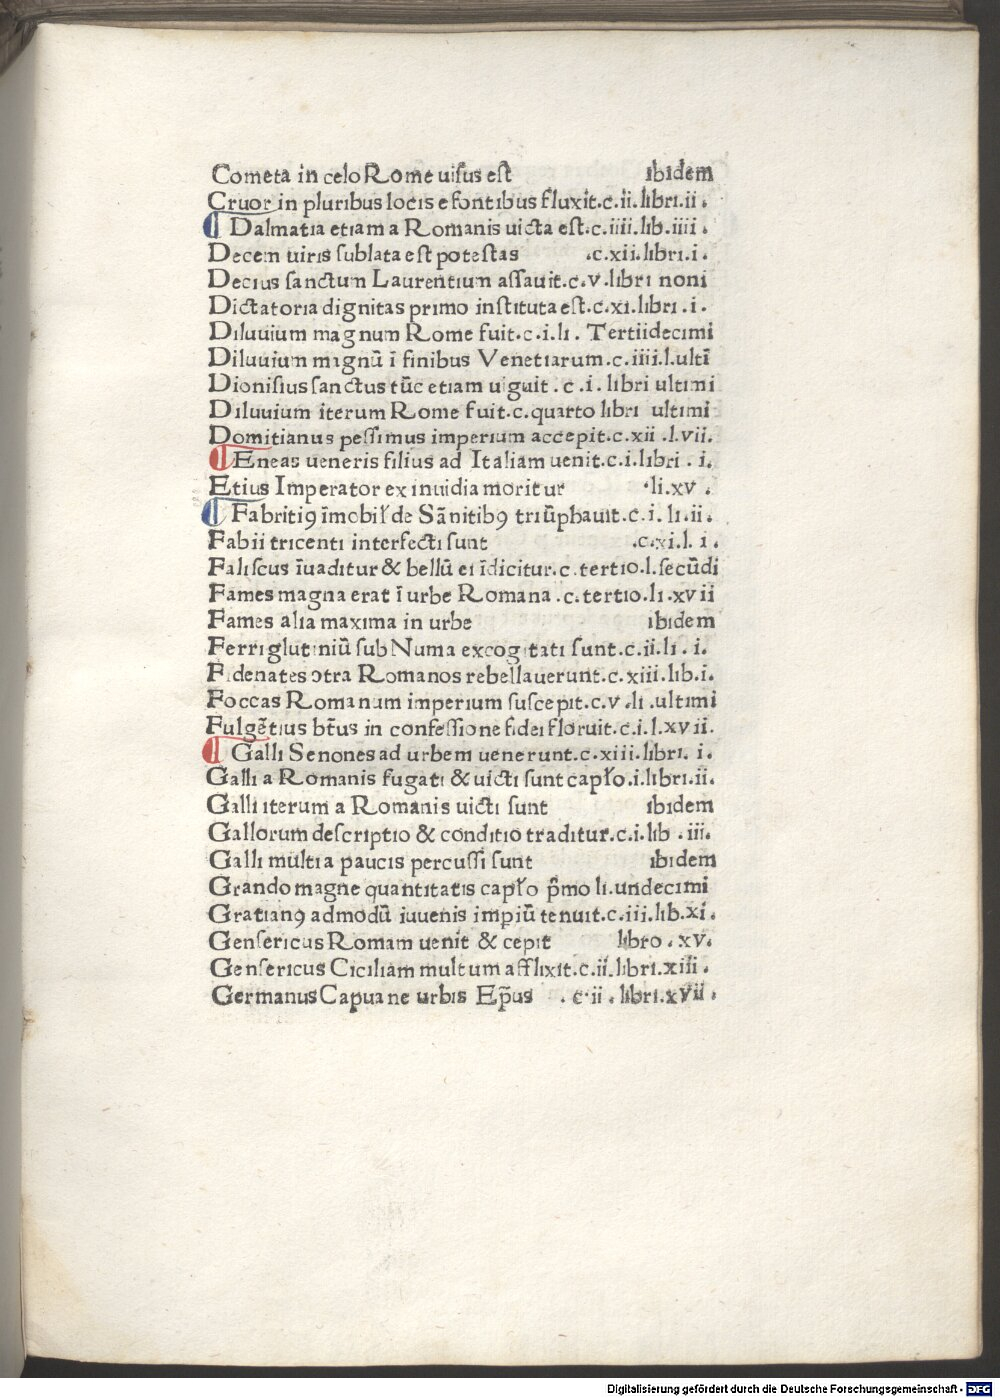 Cometa in celo Rome uisus est ibidem
Cruor in pluribus locis e fontibus fluxit.c.ii.libri.ii.
Dalmatia etiam a Romanis uicta est.c.iiii.lib.iiii.
Decem uiris sublata est potestas .c.xii.libri.i.
Decius sanctum Laurentium assauit.c.v.libri noni
Dictatoria dignitas primo instituta est.c.xi.libri.i.
Diluuium magnum Rome fuit.c.i.li. Tertiidecimi
Diluuium magnū ī finibus Venetiarum.c.iiii.l.ultī
Dionisius sanctus tūc etiam uiguit.c.i. libri ultimi
Diluuium iterum Rome fuit.c.quarto libri ultimi
Domitianus pessimus imperium accepit.c.xii.l.vii.
Eneas ueneris filius ad Italiam uenit.c.i.libri.i.
Etius Imperator ex inuidia moritur .li.xv.
Fabritiꝯ īmobil' de Sānitibꝯ triūphauit.c.i.li.ii.
Fabii tricenti interfecti sunt .c.xi.l.i.
Faliscus īuaditur & bellū ei īdicitur.c.tertio.l.secūdi
Fames magna erat ī urbe Romana.c.tertio.li.xvii
Fames alia maxima in urbe ibidem
Ferri glutiniū sub Numa excogitati sunt.c.ii.li.i.
Fidenates ↄtra Romanos rebellauerunt.c.xiii.lib.i.
Foccas Romanum imperium suscepit.c.v.li.ultimi
Fulgētius bt̄us in confessione fidei floruit.c.i.l.xvii.
Galli Senones ad urbem uenerunt.c.xiii.libri.i.
Galli a Romanis fugati & uicti sunt capło.i.libri.ii.
Galli iterum a Romanis uicti sunt ibidem
Gallorum descriptio & conditio traditur.c.i.lib.iii.
Galli multi a paucis percussi sunt ibidem
Grando magne quantitatis capło p̄mo li.undecimi
Gratianꝯ admodū iuuenis imp̄iū tenuit.c.iii.lib.xi.
Gensericus Romam uenit & cepit libro.xv.
Gensericus Ciciliam multum afflixit.c.ii.libri.xiii.
Germanus Capuane urbis Ep̄us .c.ii.libri.xvii.
Digitalisierung gefördert durch die Deutsche Forschungsgemeinschaft - DFG